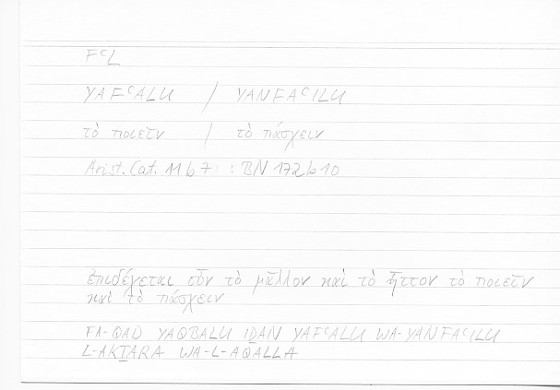 FʿL
YAFʿALU / YANFAʿILU
τὸ ποιεῖν / τὸ πάσχειν
Arist. Cat. 11 b 7 : BN 172 b 10
ἐπιδέχεται οὖν τὸ μᾶλλον καὶ τὸ ἧττον τὸ ποιεῖν
καὶ τὸ πάσχειν
FA-QAD YAQBALU IḎAN YAFʿALU WA-YANFAʿILU
L-AKṮARA WA-L-AQALLA